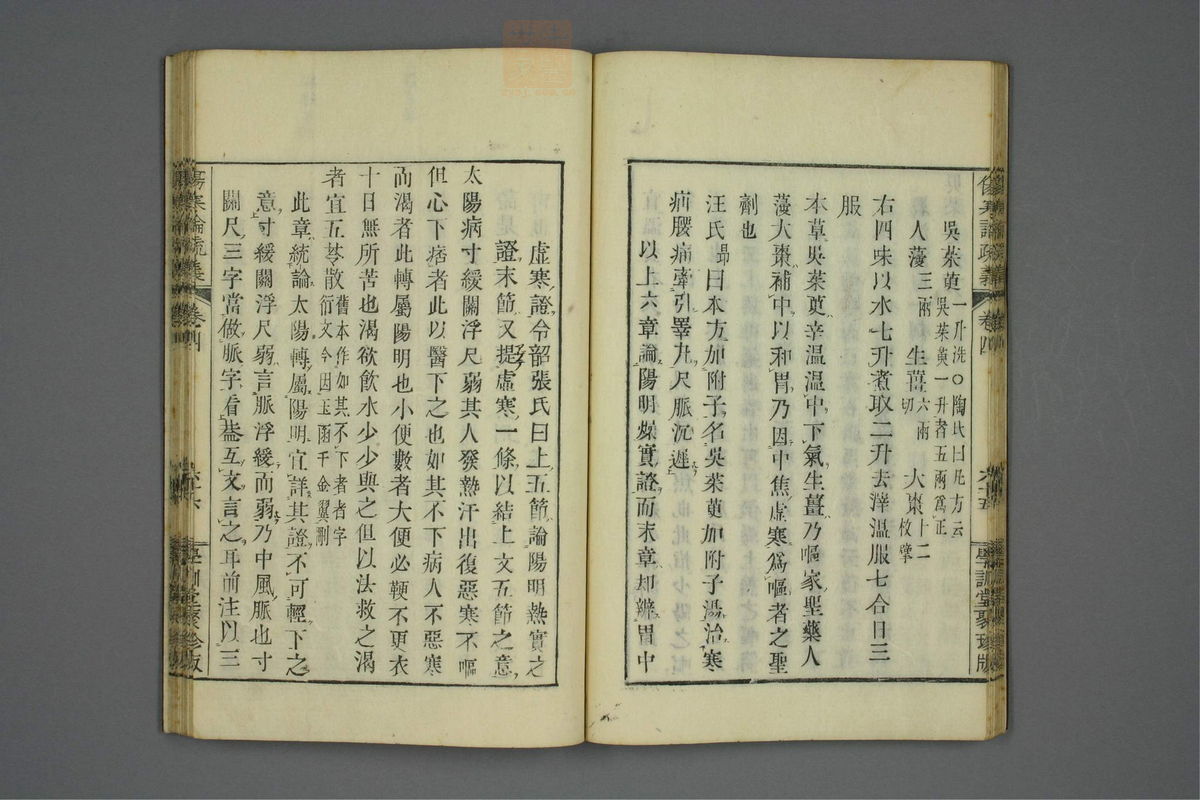 傷寒論疏義 卷四 六十五 學訓堂聚珍版
吳茱萸一升洗○陶氏曰凡方云吳茱萸一升者五兩爲正
人薓三兩 生薑六兩切 大棗十二枚擘
右四味以水七升煮取二升去滓溫服七合日三
服
本草吳茱萸辛溫溫中下氣生薑乃嘔家聖藥人
薓大棗補中以和胃乃因中焦虛寒爲嘔者之聖
劑也
汪氏昂曰本方加附子名吳茱萸加附子湯治寒
疝腰痛牽引睪丸尺脈沉遲
以上六章論陽明燥實證而末章却辨胃中
虛寒證令韶張氏曰上五節論陽明熱實之
證末節又提虛寒一條以結上文五節之意
太陽病寸緩關浮尺弱其人發熱汗出復惡寒不嘔
但心下痞者此以醫下之也如其不下病人不惡寒
而渴者此轉屬陽明也小便數者大便必鞕不更衣
十日無所苦也渴欲飲水少少與之但以法救之渴
者宜五苓散舊本作如其不下者者字衍文今因玉函千金翼刪
此章統論太陽轉屬陽明宜詳其證不可輕下之
意寸緩關浮尺弱言脈浮緩而弱乃中風脈也寸
關尺三字當做脈字看葢互文言之耳前注以三
傷寒論疏義 卷四 六十六 學訓堂聚珍版